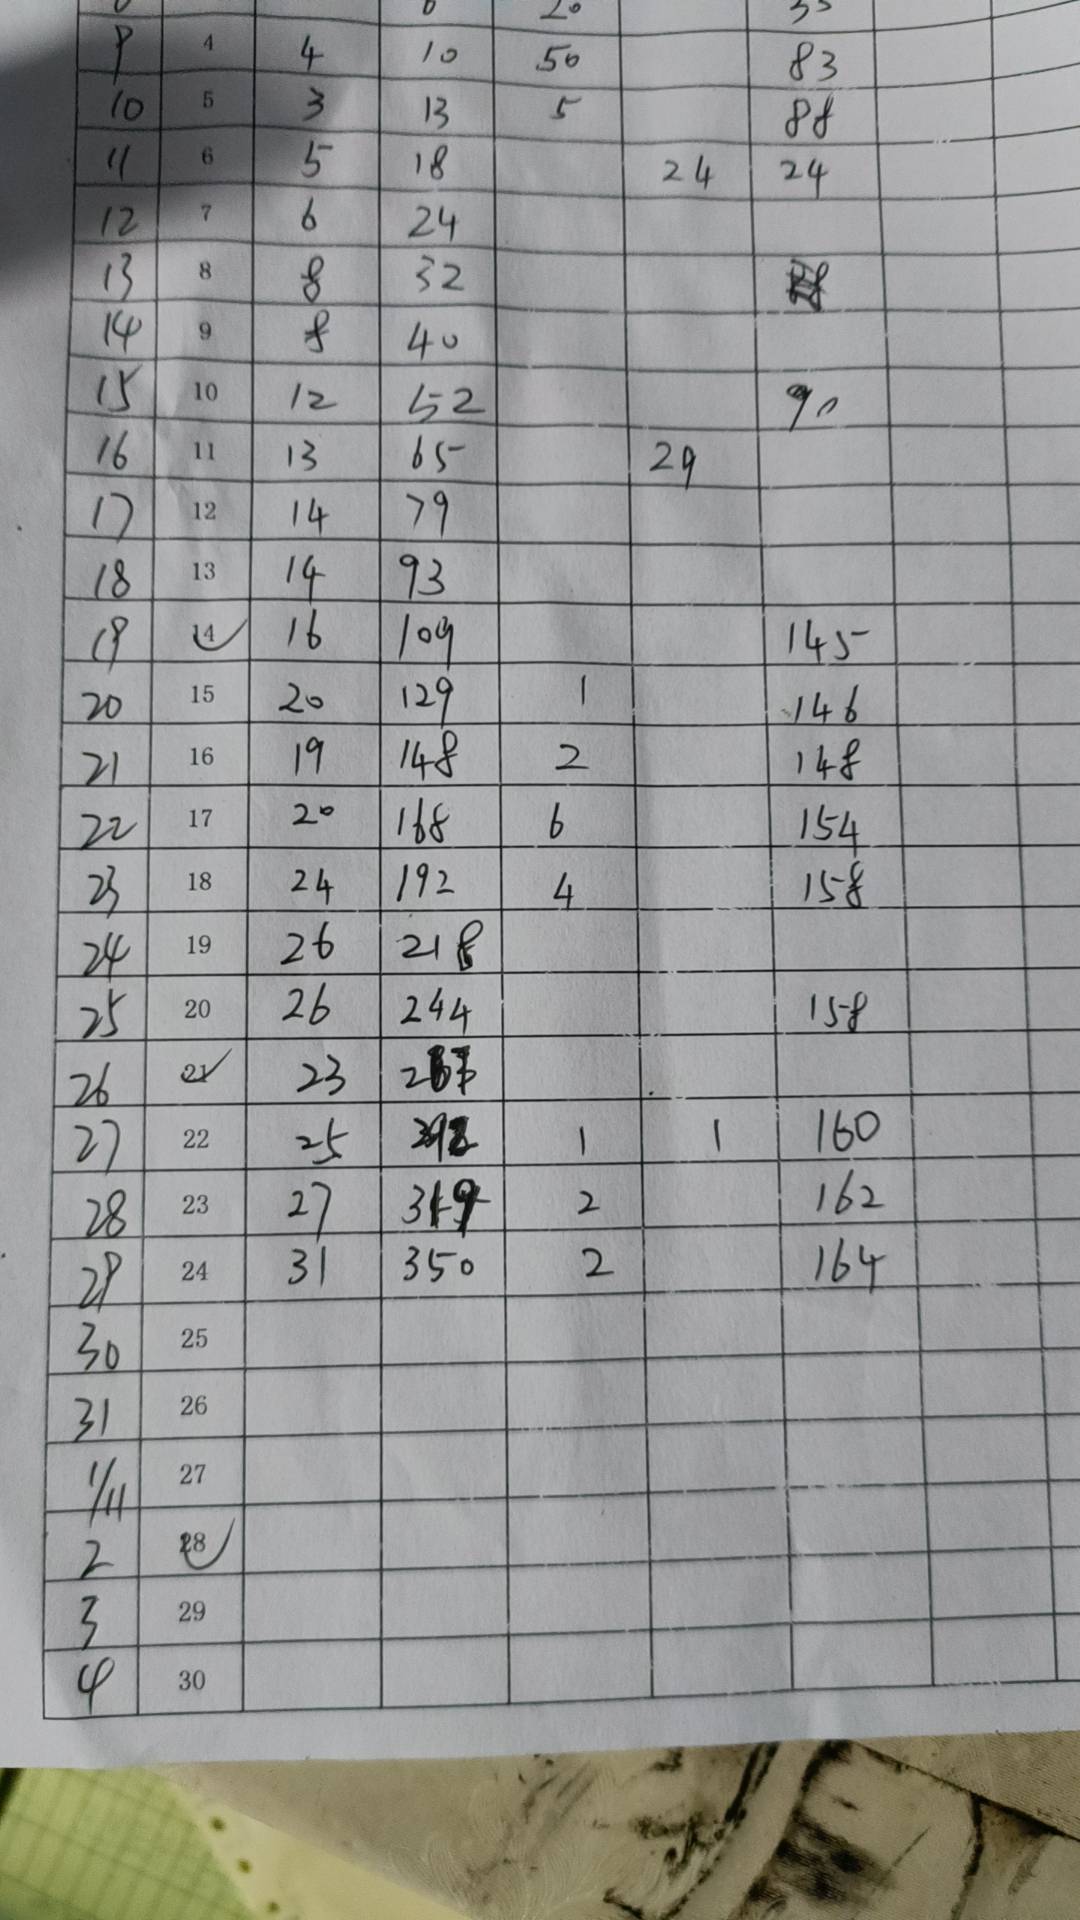 6 20 35
9 4 4 10 50 83
10 5 3 13 5 88
11 6 5 18 24 24
12 7 6 24
13 8 8 32
14 9 8 40
15 10 12 52 90
16 11 13 65 29
17 12 14 79
18 13 14 93
19 14 16 109 145
20 15 20 129 1 146
21 16 19 148 2 148
22 17 20 168 6 154
23 18 24 192 4 158
24 19 26 218
25 20 26 244 158
26 21 23
27 22 25 1 1 160
28 23 27 2 162
29 24 31 350 2 164
30 25
31 26
1/11 27
2 28
3 29
4 30